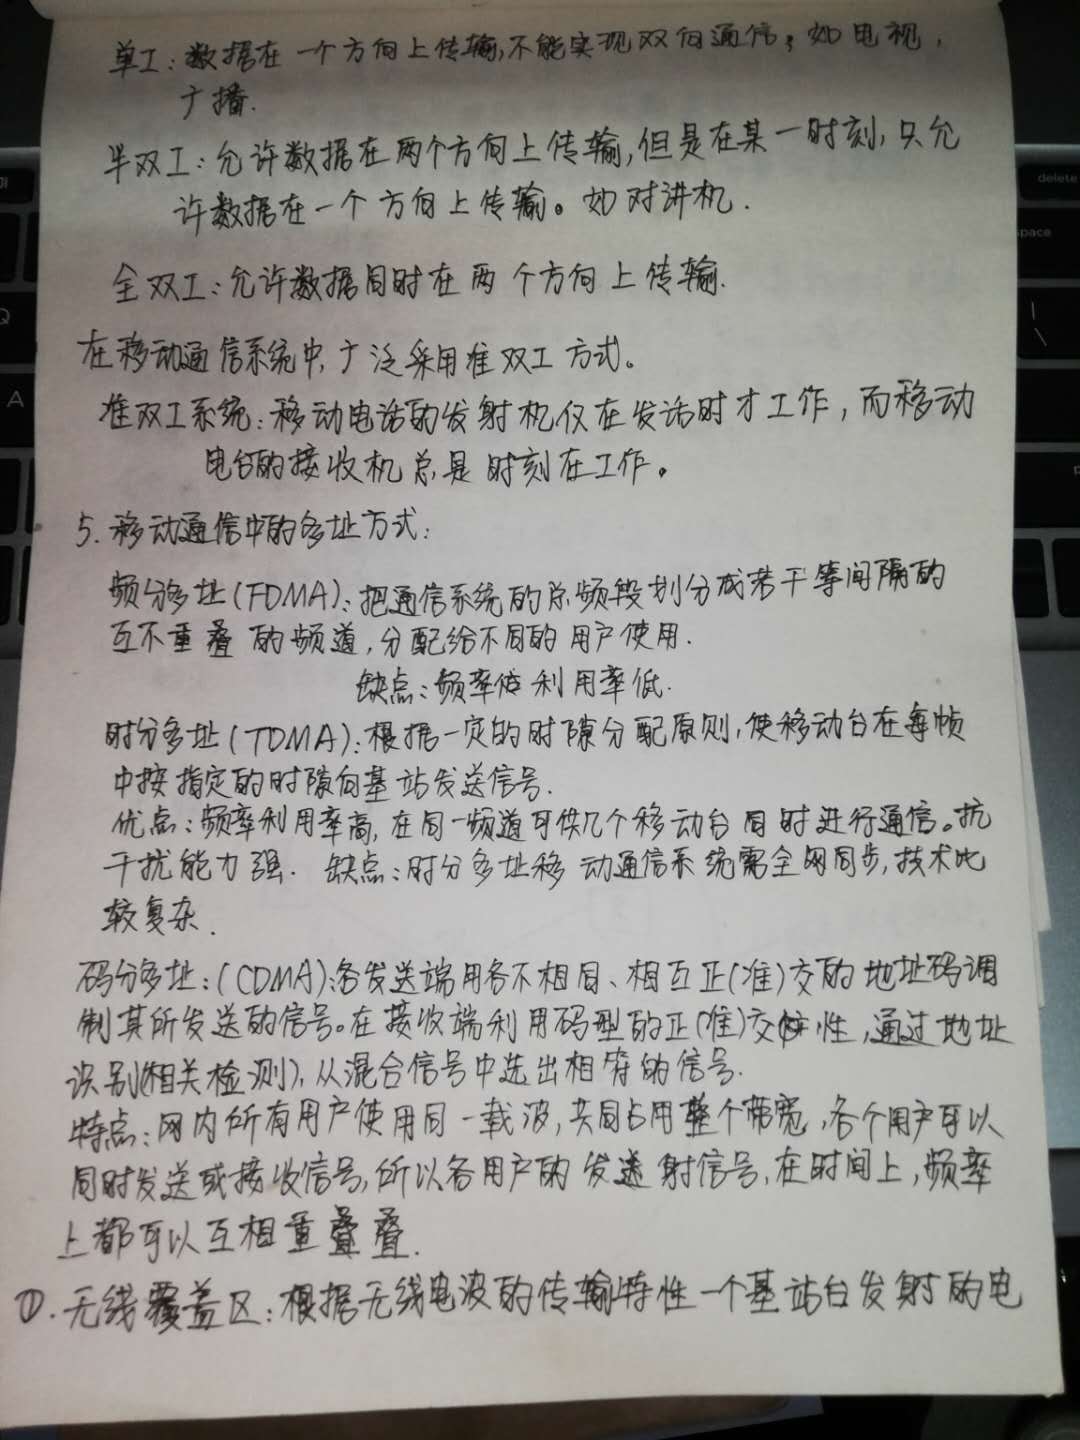 单工：数据在一个方向上传输，不能实现双向通信，如电视，
广播.
半双工：允许数据在两个方向上传输，但是在某一时刻，只允
许数据在一个方向上传输。如对讲机.
全双工：允许数据同时在两个方向上传输.
在移动通信系统中，广泛采用准双工方式。
准双工系统：移动电话的发射机仅在发话时才工作，而移动
电台的接收机总是时刻在工作。
5. 移动通信中的多址方式：
频分多址(FDMA)：把通信系统的总频段划分成若干等间隔的
互不重叠的频道，分配给不同的用户使用.
缺点：频率利用率低.
时分多址(TDMA)：根据一定的时隙分配原则，使移动台在每帧
中按指定的时隙向基站发送信号.
优点：频率利用率高，在同一频道可供几个移动台同时进行通信。抗
干扰能力强. 缺点：时分多址移动通信系统需全网同步，技术比
较复杂.
码分多址：(CDMA)：各发送端用各不相同、相互正(准)交的地址码调
制其所发送的信号。在接收端利用码型的正(准)交性，通过地址
识别(相关检测)，从混合信号中选出相符的信号.
特点：网内所有用户使用同一载波，共同占用整个带宽，各个用户可以
同时发送或接收信号，所以各用户的发射信号，在时间上，频率
上都可以互相重叠.
①. 无线覆盖区：根据无线电波的传输特性一个基站台发射的电
delete
space
Q
A
\